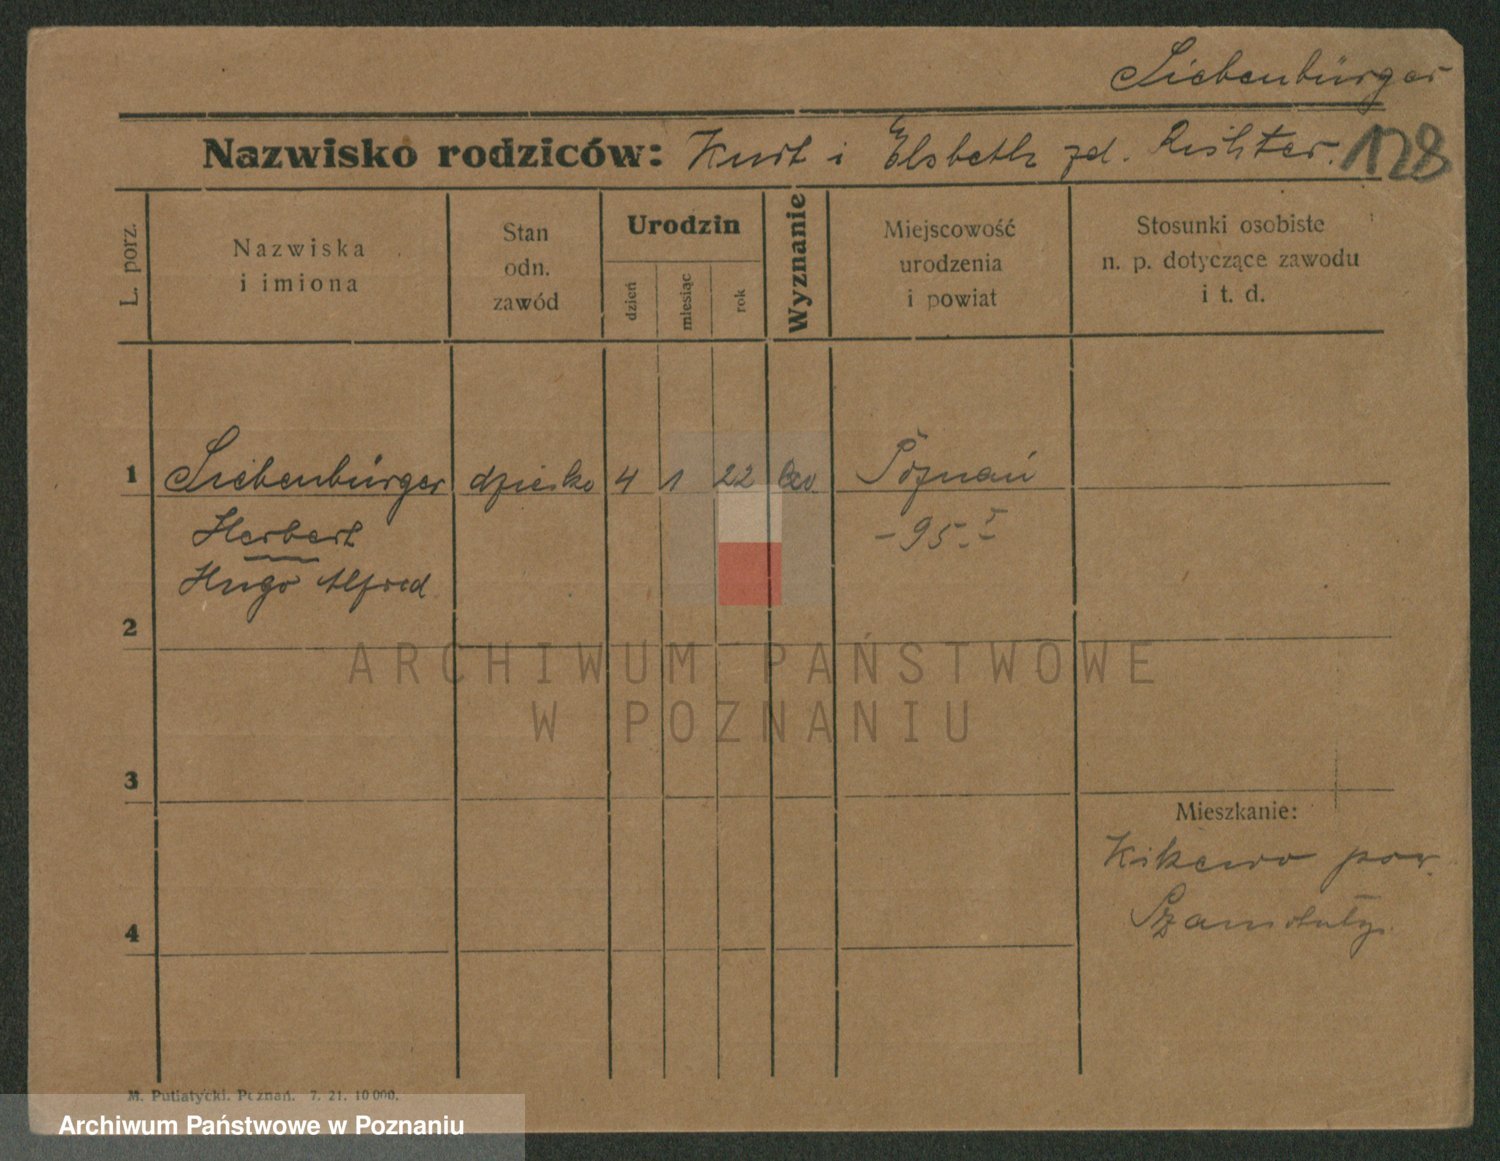 Siebenbürger
Nazwisko rodziców: Kurt i Elsbeth zd. Richter. 128
L. porz.
Nazwiska
i imiona
Stan
odn.
zawód
Urodzin
dzień
miesiąc
rok
Wyznanie
Miejscowość
urodzenia
i powiat
Stosunki osobiste
n. p. dotyczące zawodu
i t. d.
1 Siebenbürger dziecko 4 1 22 ew Poznań
Herbert - 95.
Hugo Alfred
2
3
4
Mieszkanie:
pow.
Szamotuły.
M. Putiatycki. Poznań. 7. 21. 10 000.
ARCHIWUM PAŃSTWOWE
W POZNANIU
Archiwum Państwowe w Poznaniu